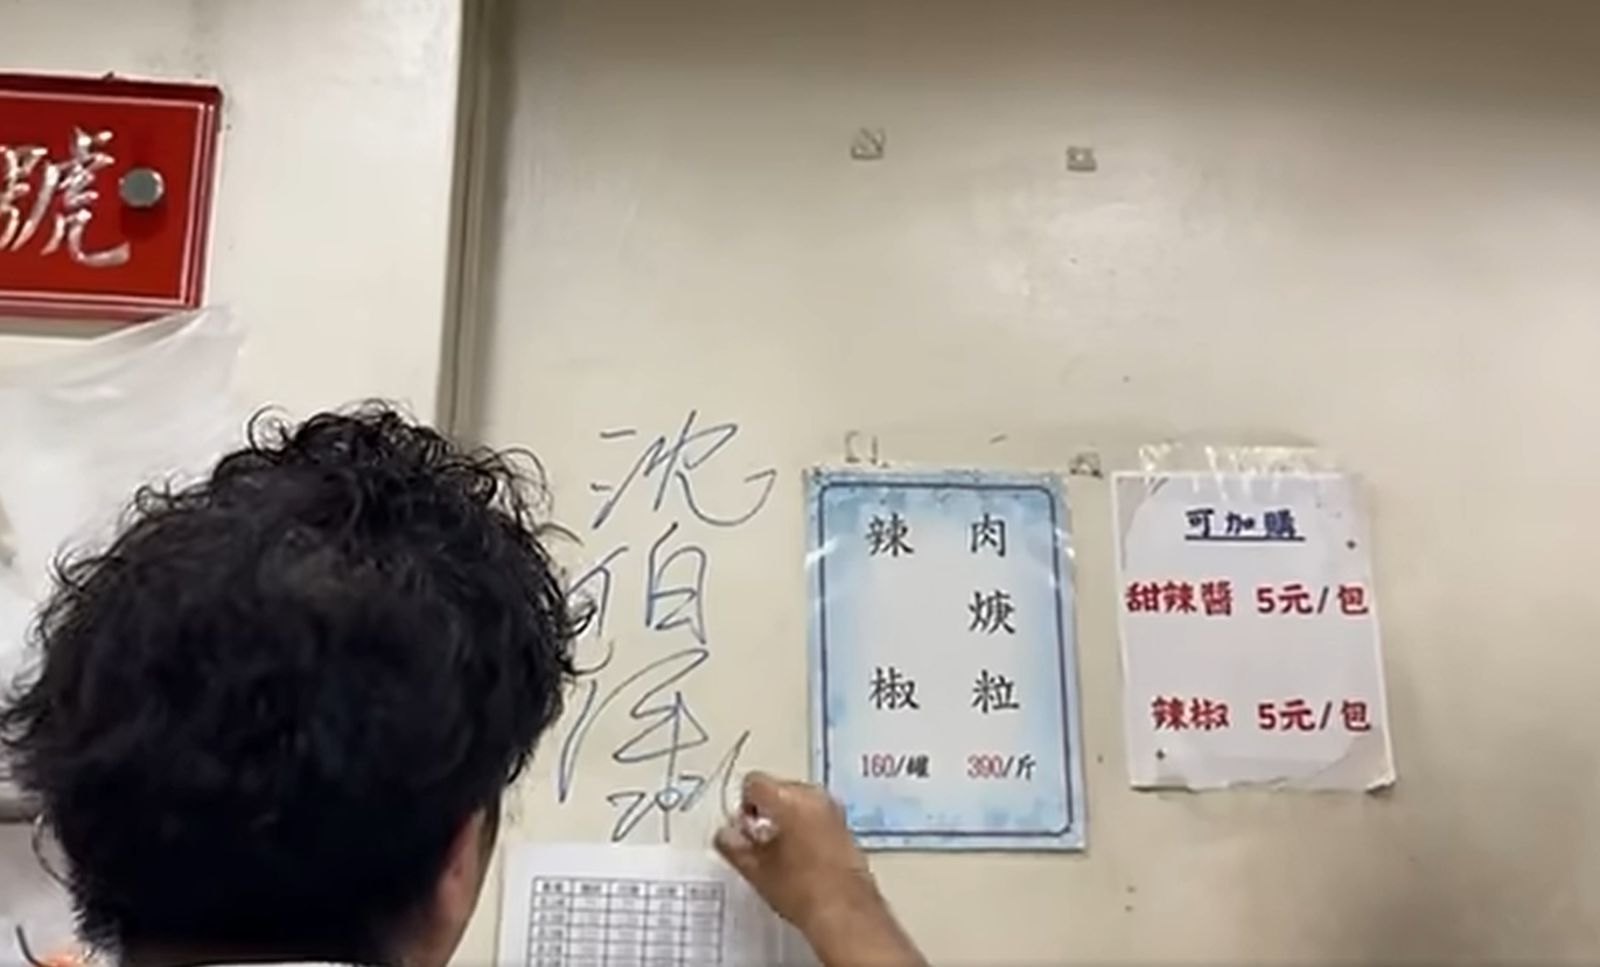 號
沈
伯
洋
肉焿粒
390/斤
辣椒
160/罐
可加購
甜辣醬 5元/包
辣椒 5元/包